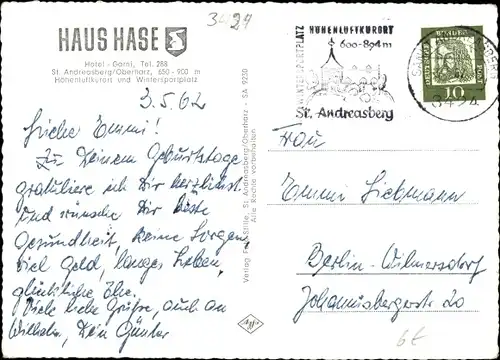 3424
HAUS HASE
Hotel - Garni, Tel. 288
St. Andreasberg/Oberharz, 650 - 900 m
Höhenluftkurort und Wintersportplatz
3.5.62
Liebe Emmi!
Zu Deinem Geburtstage
gratuliere ich Dir herzlichst
und wünsche Dir beste
Gesundheit, keine Sorgen,
viel Geld, langes Leben,
glückliche Ehe.
Viele liebe Grüße, auch an
Wilhelm, Dein Günter
Verlag Stille, St. Andreasberg/Oberharz - SA 9230
Alle Rechte vorbehalten
Agfa
WINTERSPORTPLATZ
HÖHENLUFTKURORT
600-894m
St. Andreasberg
DEUTSCHE
BUNDES
POST
10
3424
Frau
Emmi Liebmann
Berlin-Wilmersdorf
Johannisbergerstr. 20
6€